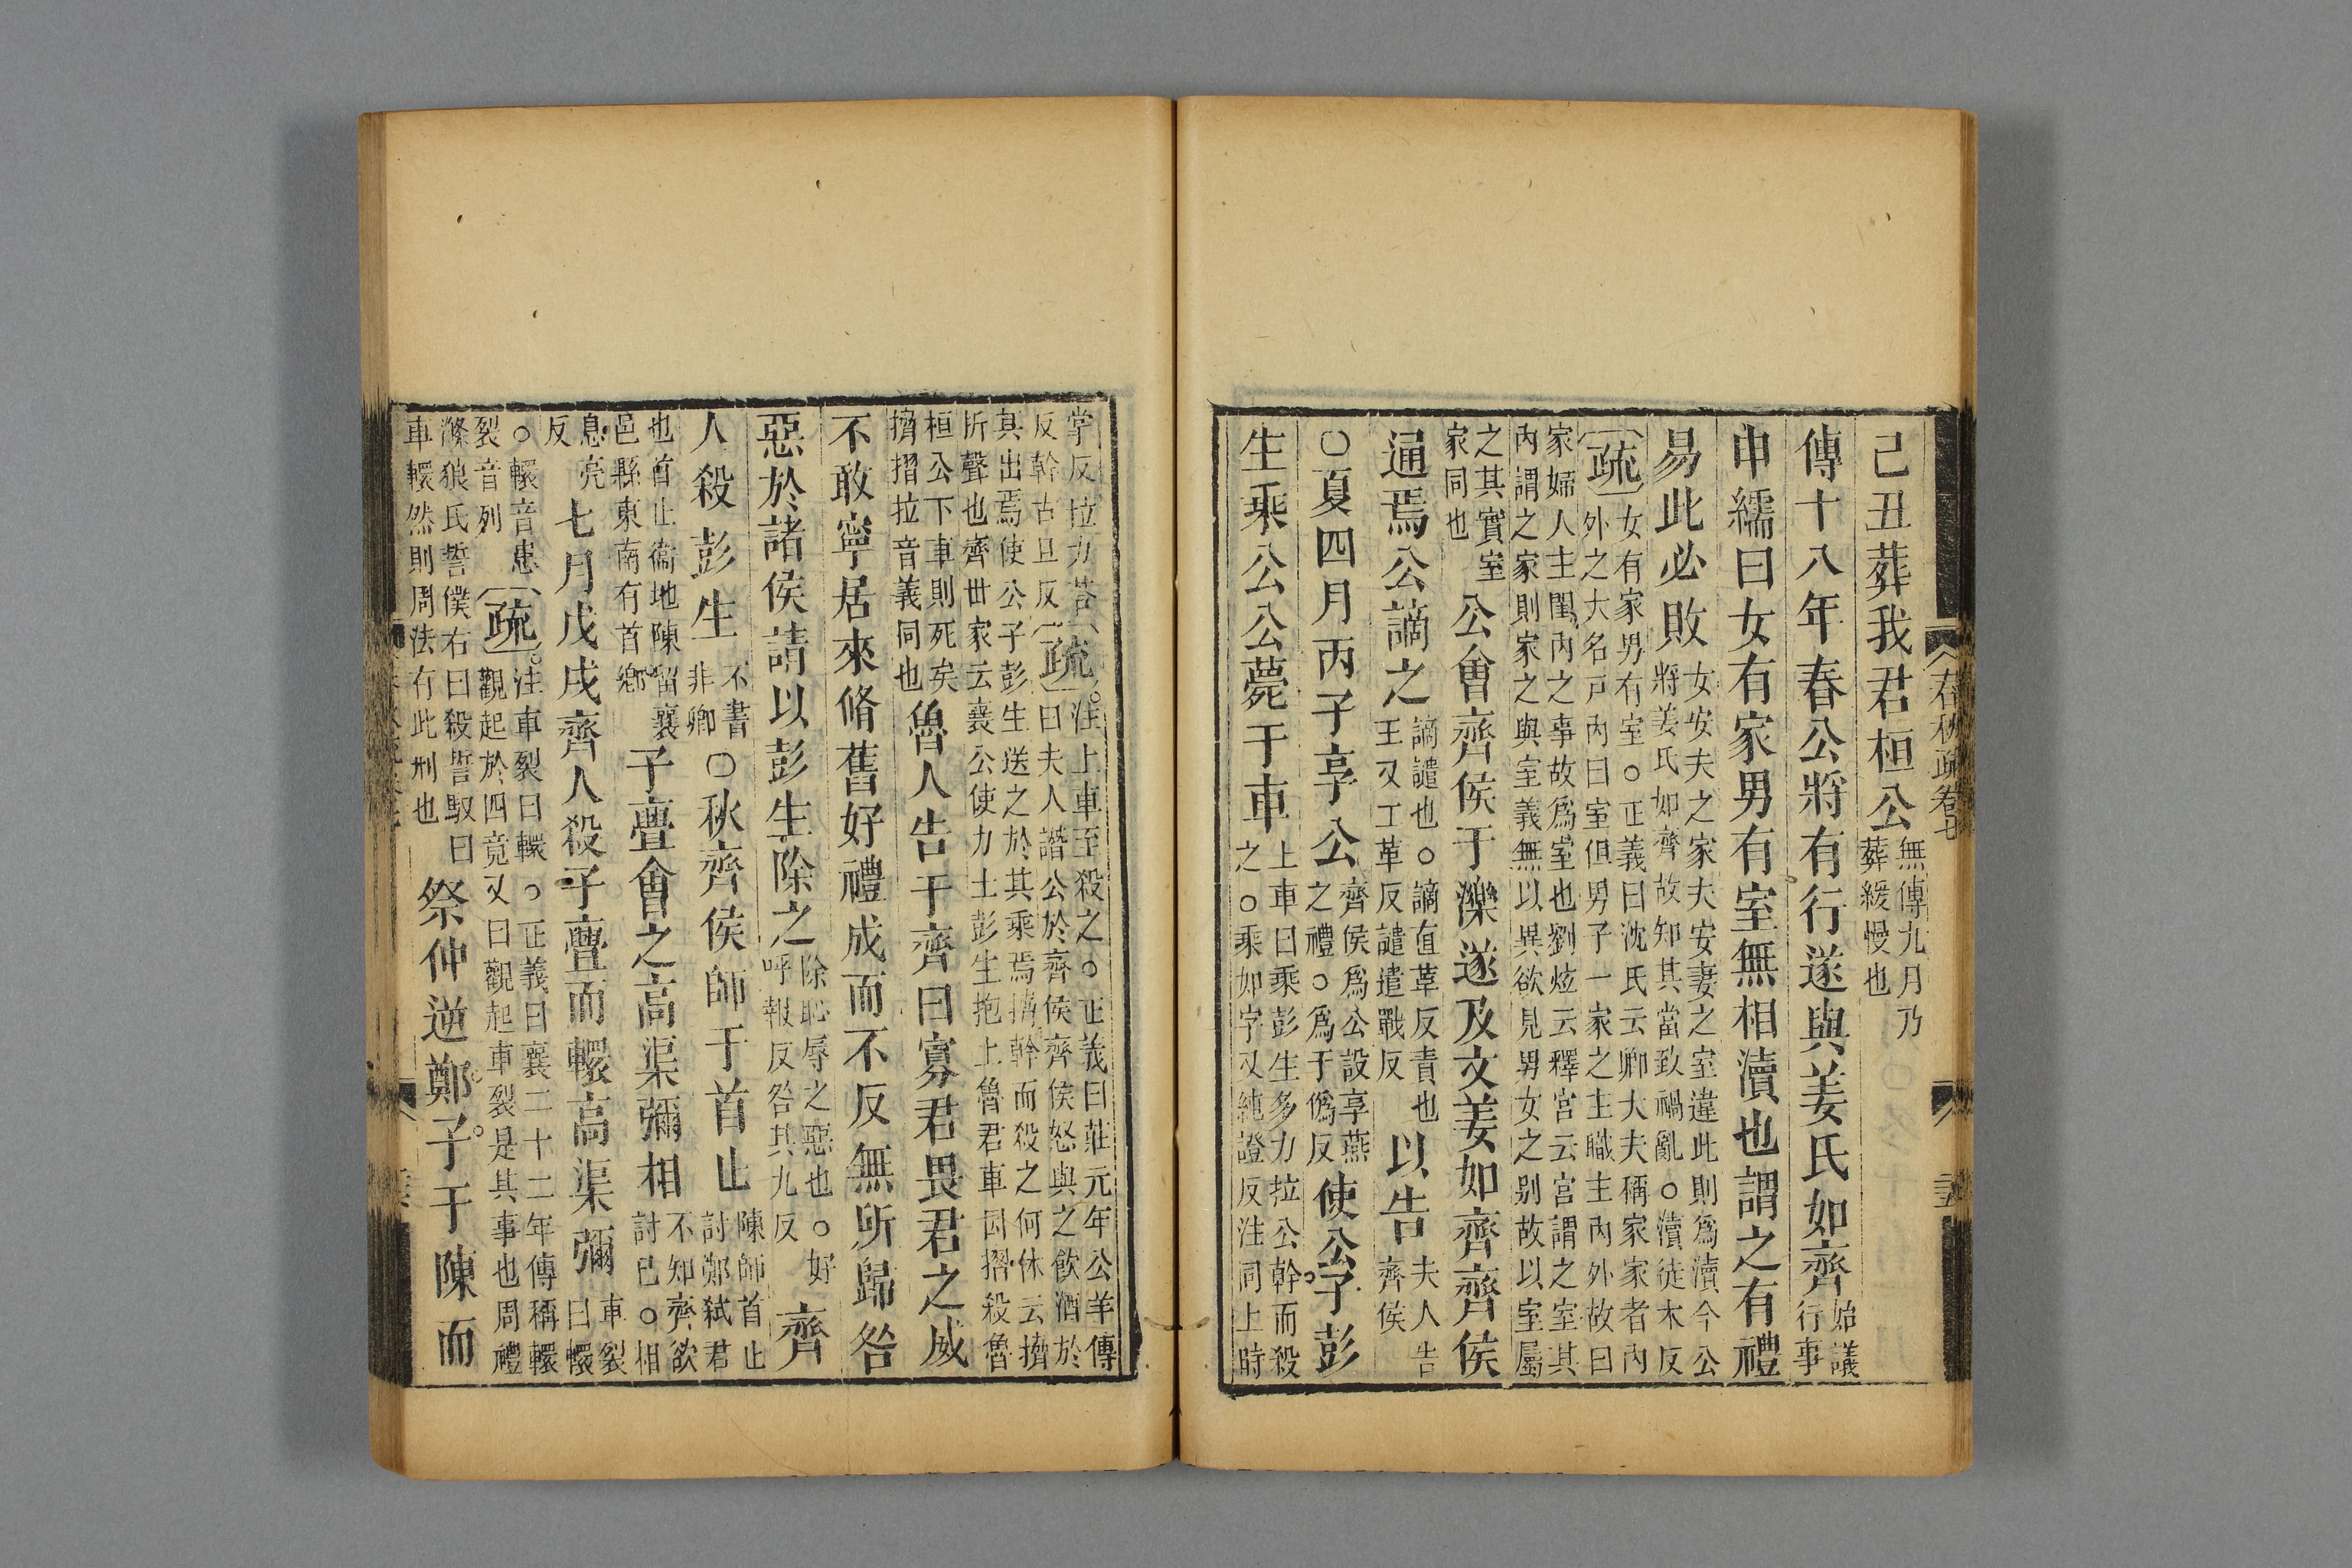 春秋疏卷七
己丑葬我君桓公無傳九月乃葬緩慢也
傳十八年春公將有行遂與姜氏如齊始議行事
申繻曰女有家男有室無相瀆也謂之有禮
易此必敗女安夫之家夫安妻之室違此則爲瀆今公將姜氏如齊故知其當致禍亂○瀆徒木反
疏女有家男有室○正義曰沈氏云卿大夫稱家家者內外之大名戸內曰室但男子一家之主職主內外故曰
家婦人主閨內之事故爲室也劉炫云釋宮云宮謂之室其內謂之家則家之與室義無以異欲見男女之别故以室屬
之其實室家同也公會齊侯于濼遂及文姜如齊齊侯
通焉公謫之謫譴也○謫直革反責也王又工革反譴遣戰反以告夫人告齊侯
○夏四月丙子享公齊侯爲公設享燕之禮○爲于僞反使公子彭
生乘公公薨于車上車曰乘彭生多力拉公幹而殺之○乘如字又繩證反注同上時
掌反拉力荅反幹古旦反疏注上車至殺之○正義曰莊元年公羊傳曰夫人譖公於齊侯齊侯怒與之飲酒於
其出焉使公子彭生送之於其乘焉搚幹而殺之何休云搚折聲也齊世家云襄公使力士彭生抱上魯君車因摺殺魯
桓公下車則死矣搚摺拉音義同也魯人告于齊曰寡君畏君之威
不敢寧居來脩舊好禮成而不反無所歸咎
惡於諸侯請以彭生除之除恥辱之惡也○好呼報反咎其九反齊
人殺彭生不書非卿○秋齊侯師于首止陳師首止討鄭弑君
也首止衞地陳留襄邑縣東南有首鄉子亹會之高渠彌相不知齊欲討己○相
息亮反七月戊戌齊人殺子亹而轘高渠彌車裂曰轘
○轘音患裂音列疏注車裂曰轘○正義曰襄二十二年傳稱轘觀起於四竟又曰觀起車裂是其事也周禮
滌狼氏誓僕右曰殺誓馭曰車轘然則周法有此刑也祭仲逆鄭子于陳而